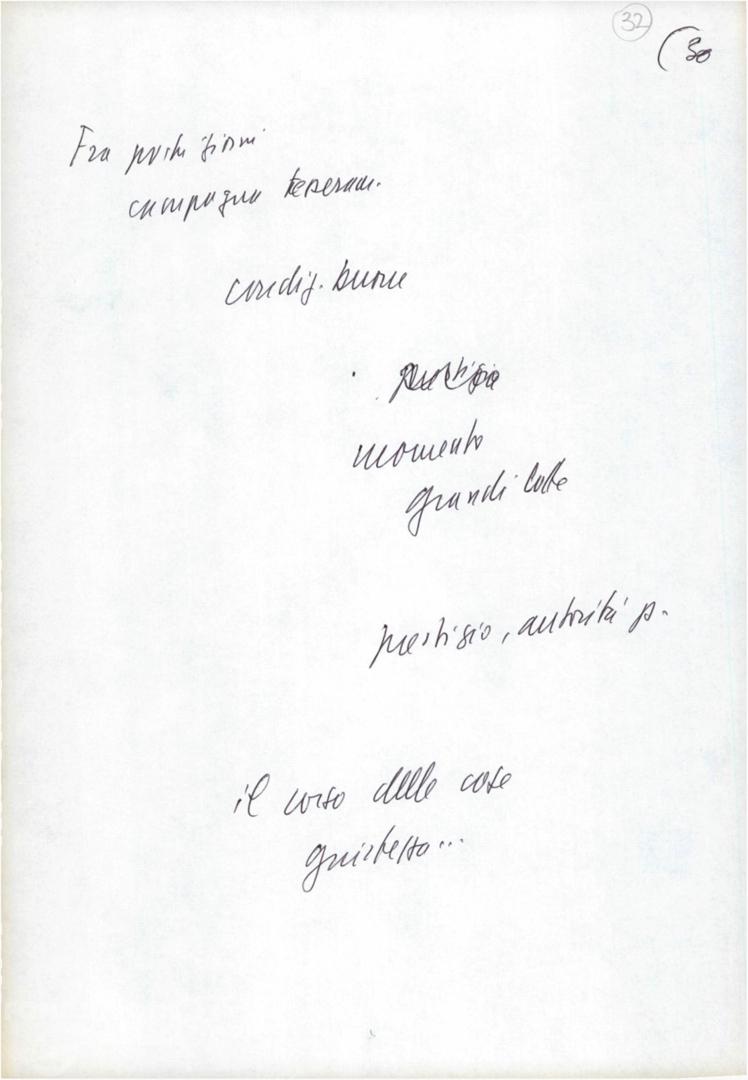 32
(30
Fra pochi giorni
campagna tesseram.
condiz. buone
prestigio
momento
grandi lotte
prestigio, autorità p.
il corso delle cose